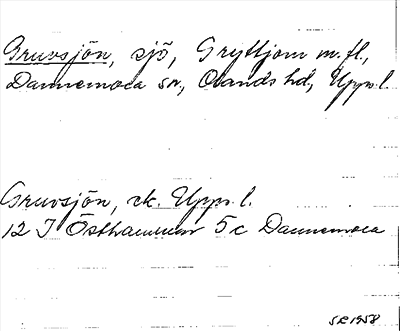 Gruvsjön, sjö, Gryttjom m.fl.,
Dannemora sn, Olands hd, Upps. l.
Gruvsjön, ek. Upps. l.
12 I Östhammar 5c Dannemora
SR 1958